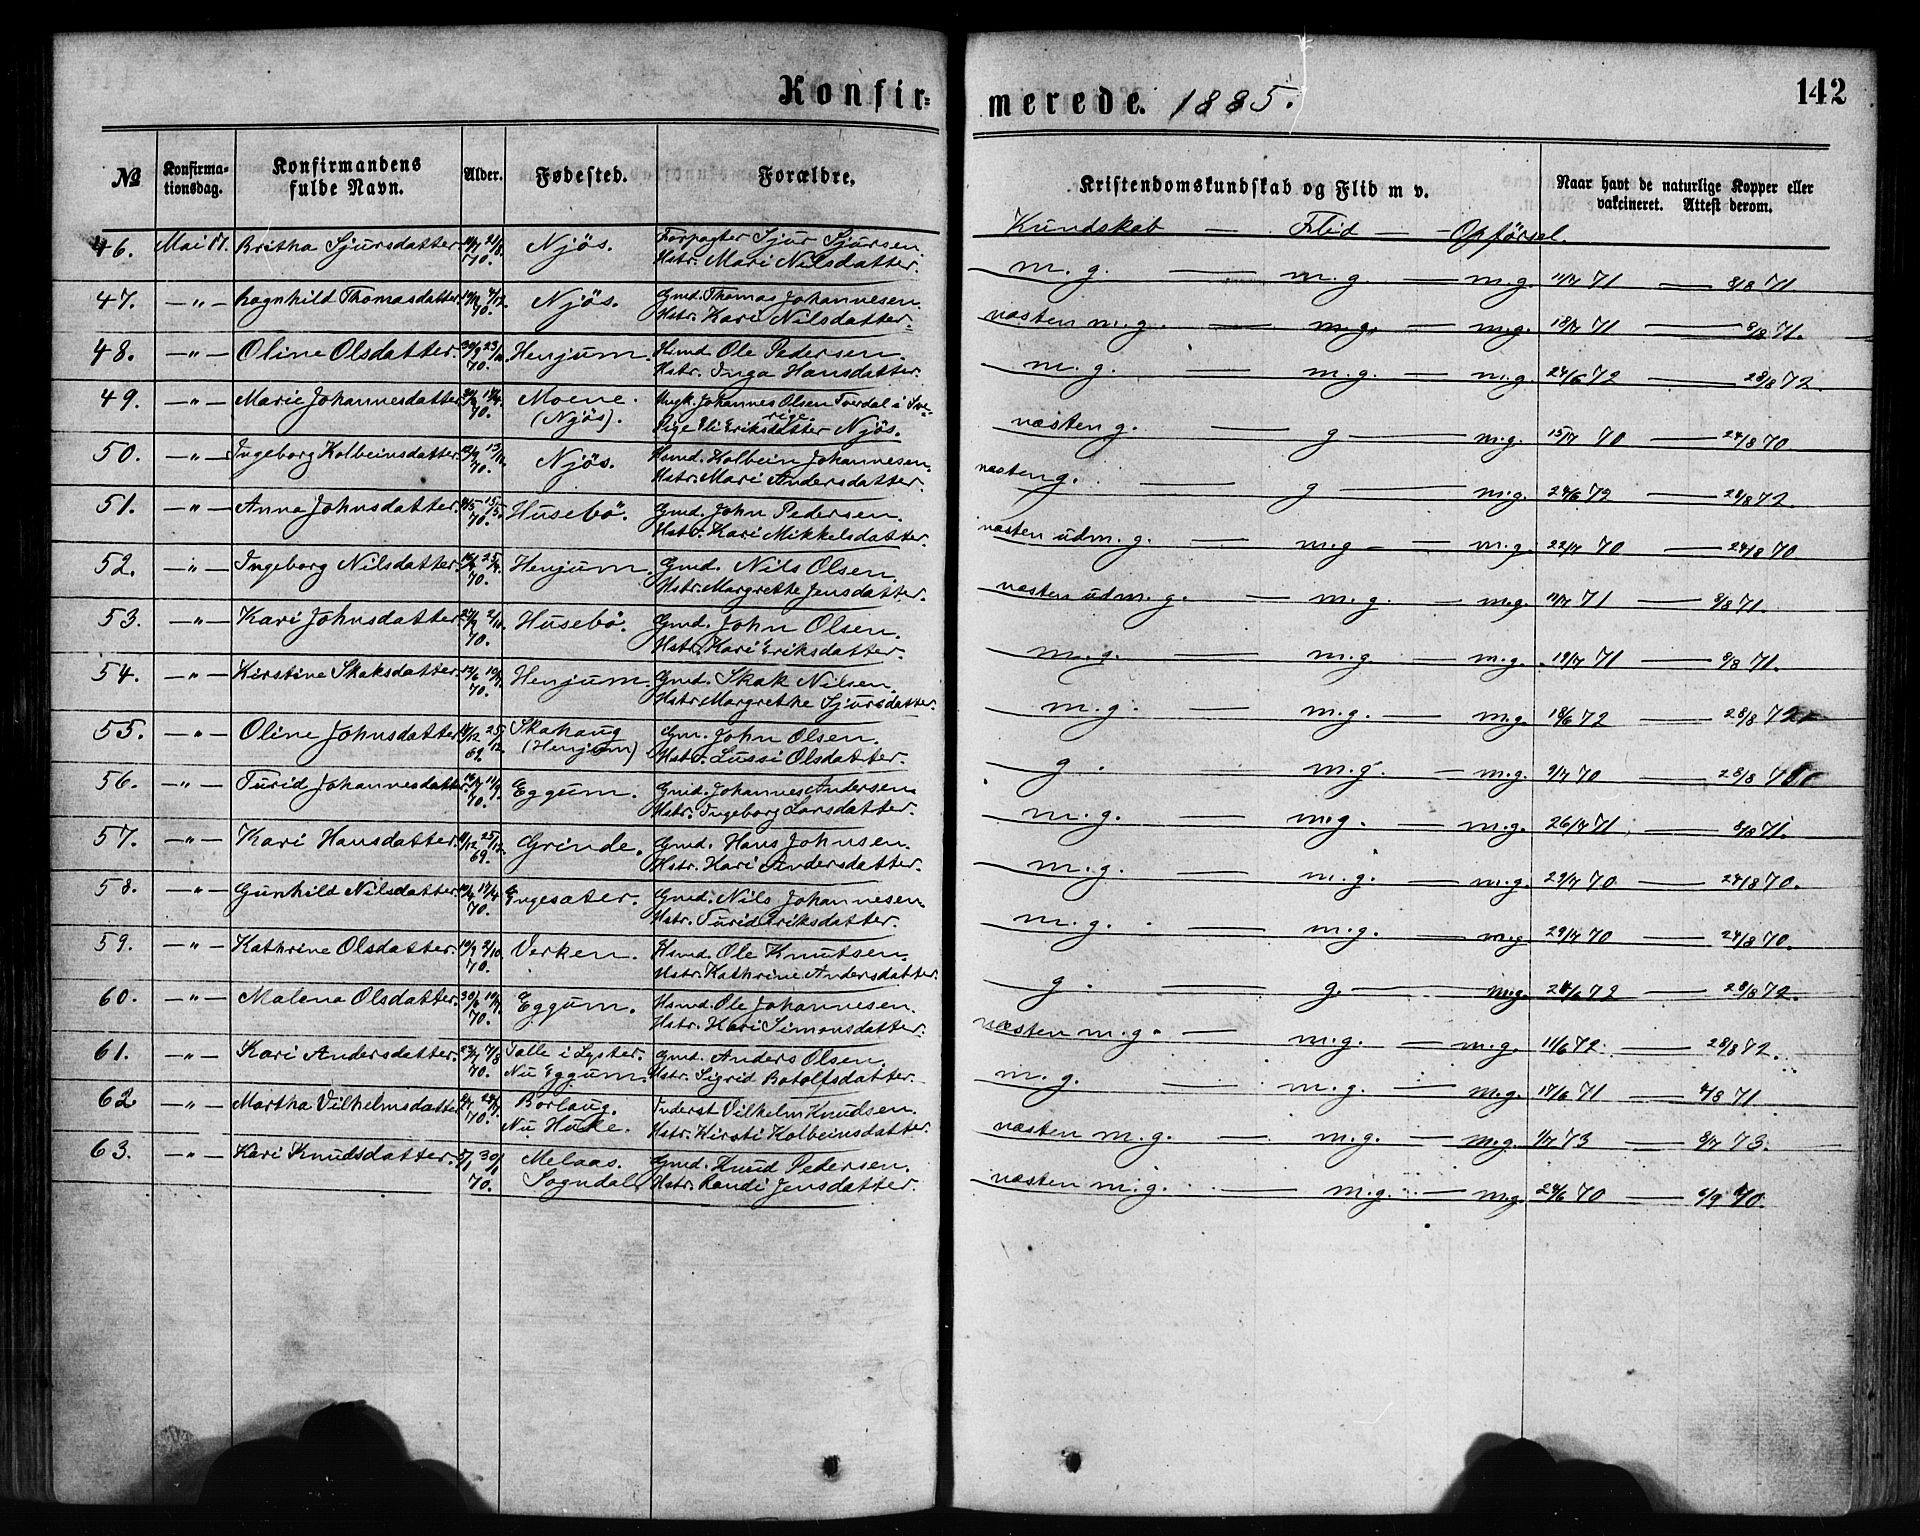 Konfir=
merede. 1885.
142
No
Konfirma-
tionsdag.
Konfirmandens
fulde Navn.
Alder.
Fødested.
Forældre.
Kristendomskundskab og Flid m v.
Naar havt de naturlige Kopper eller
vakcineret. Attest derom.
Kundskab — Flid — Opførsel.
46. Mai 17. Britha Sjursdatter 70. Njøs. Forpagter Sjur Sjursen
Hstr. Mari Nilsdatter. m.g. — m.g. — m.g. 11/7 71 — 8/8 71.
47. —"— Ragnhild Thomasdatter 70. Njøs. Gmd. Thomas Johannesen
Hstr. Kari Nilsdatter. næsten m.g. — m.g. — m.g. 18/7 71 — 8/8 71.
48. —"— Oline Olsdatter. 30/9 23/10 70. Henjum. Hsmd. Ole Pedersen.
Hstr. Inga Hansdatter. m.g. — m.g. — m.g. 24/6 72 — 28/8 72.
49. —"— Marie Johannesdatter 70. Moene.
(Njøs). Ungk. Johannes Olsen Tverdal i Sve-
rige
Pige Eli Eriksdatter Njøs. næsten g. — g — m.g. 15/7 70 — 24/8 70
50. —"— Ingeborg Kolbeinsdatter 70. Njøs. Hsmd. Kolbein Johannesen.
Hstr. Mari Andersdatter. næsten g. — g — m.g. 24/6 72 — 28/8 72.
51. —"— Anna Johnsdatter 70. Husebø. Gmd. John Pedersen.
Hstr. Kari Mikkelsdatter næsten udm. g. — m.g — m.g. 22/7 70 — 24/8 70
52. —"— Ingeborg Nilsdatter 70. Henjum. Gmd. Nils Olsen
Hstr. Margrethe Jensdatter. næsten udm. g. — m.g. — m.g. 11/7 71 — 8/8 71.
53. —"— Kari Johnsdatter 70. Husebø. Gmd. John Olsen.
Hstr. Kari Eriksdatter. m.g. — m.g — m.g. 19/7 71 — 8/8 71.
54. —"— Kirstine Skaksdatter 70. Henjum. Gmd. Skak Nilsen
Hstr. Margrethe Sjursdatter. m.g. — m.g. — m.g. 18/6 72 — 28/8 72
55. —"— Oline Johnsdatter 69. Skahaug
(Henjum) Gm. John Olsen.
Hstr. Lussi Olsdatter. g. — m.g. — m.g. 9/7 70 — 28/8 70
56. —"— Turid Johannesdatter 70. Eggum. Gmd. Johannes Andersen
Hstr. Ingeborg Larsdatter. m.g. — m.g. — m.g. 26/7 71 — 8/8 71.
57. —"— Kari Hansdatter 69. Grinde. Gmd. Hans Johnsen.
Hstr. Kari Andersdatter. m.g. — m.g. — m.g. 29/7 70 — 24/8 70.
58. —"— Gunhild Nilsdatter 70. Engesæter. Gmd. Nils Johannesen
Hstr. Turid Eriksdatter. m.g. — m.g. — m.g. 29/7 70 — 24/8 70.
59. —"— Kathrine Olsdatter. 19/9 2/10 70. Verken. Hsmd. Ole Knutsen.
Hstr. Kathrine Andersdatter. g. — g. — m.g. 24/6 72 — 28/8 72.
60. —"— Malena Olsdatter. 70. Eggum. Hsmd. Ole Johannesen
Hstr. Kari Simonsdatter. næsten m.g. — m.g. — m.g. 11/6 72 — 28/8 72.
61. —"— Kari Andersdatter. 23/7 7/8 70. Talle i Lyster.
Nu Eggum. Gmd. Anders Olsen
Hstr. Sigrid Botolfsdatter. m.g. — m.g. — m.g. 17/6 71 — 4/8 71
62. —"— Martha Vilhelmsdatter 70. Borlaug.
Nu Huke. Inderst Vilhelm Knudsen.
Hstr. Kirsti Kolbeinsdatter. næsten m.g. — m.g. — m.g. 1/7 73 — 8/7 73.
63. —"— Kari Knudsdatter. 5/1 30/1 70. Melaas.
Sogndal. Gmd. Knud Pedersen.
Hstr. Randi Jensdatter. næsten m.g. — m.g. — m.g. 24/6 70 — 6/9 70.